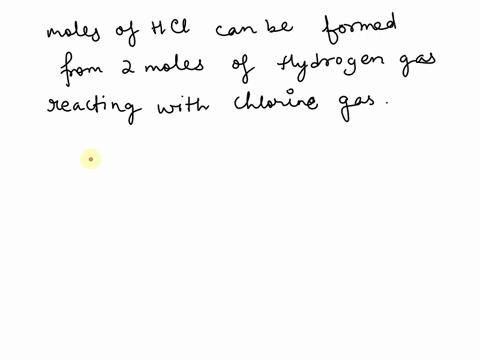 moles of HCl can be formed
from 2 moles of Hydrogen gas
reacting with chlorine gas.